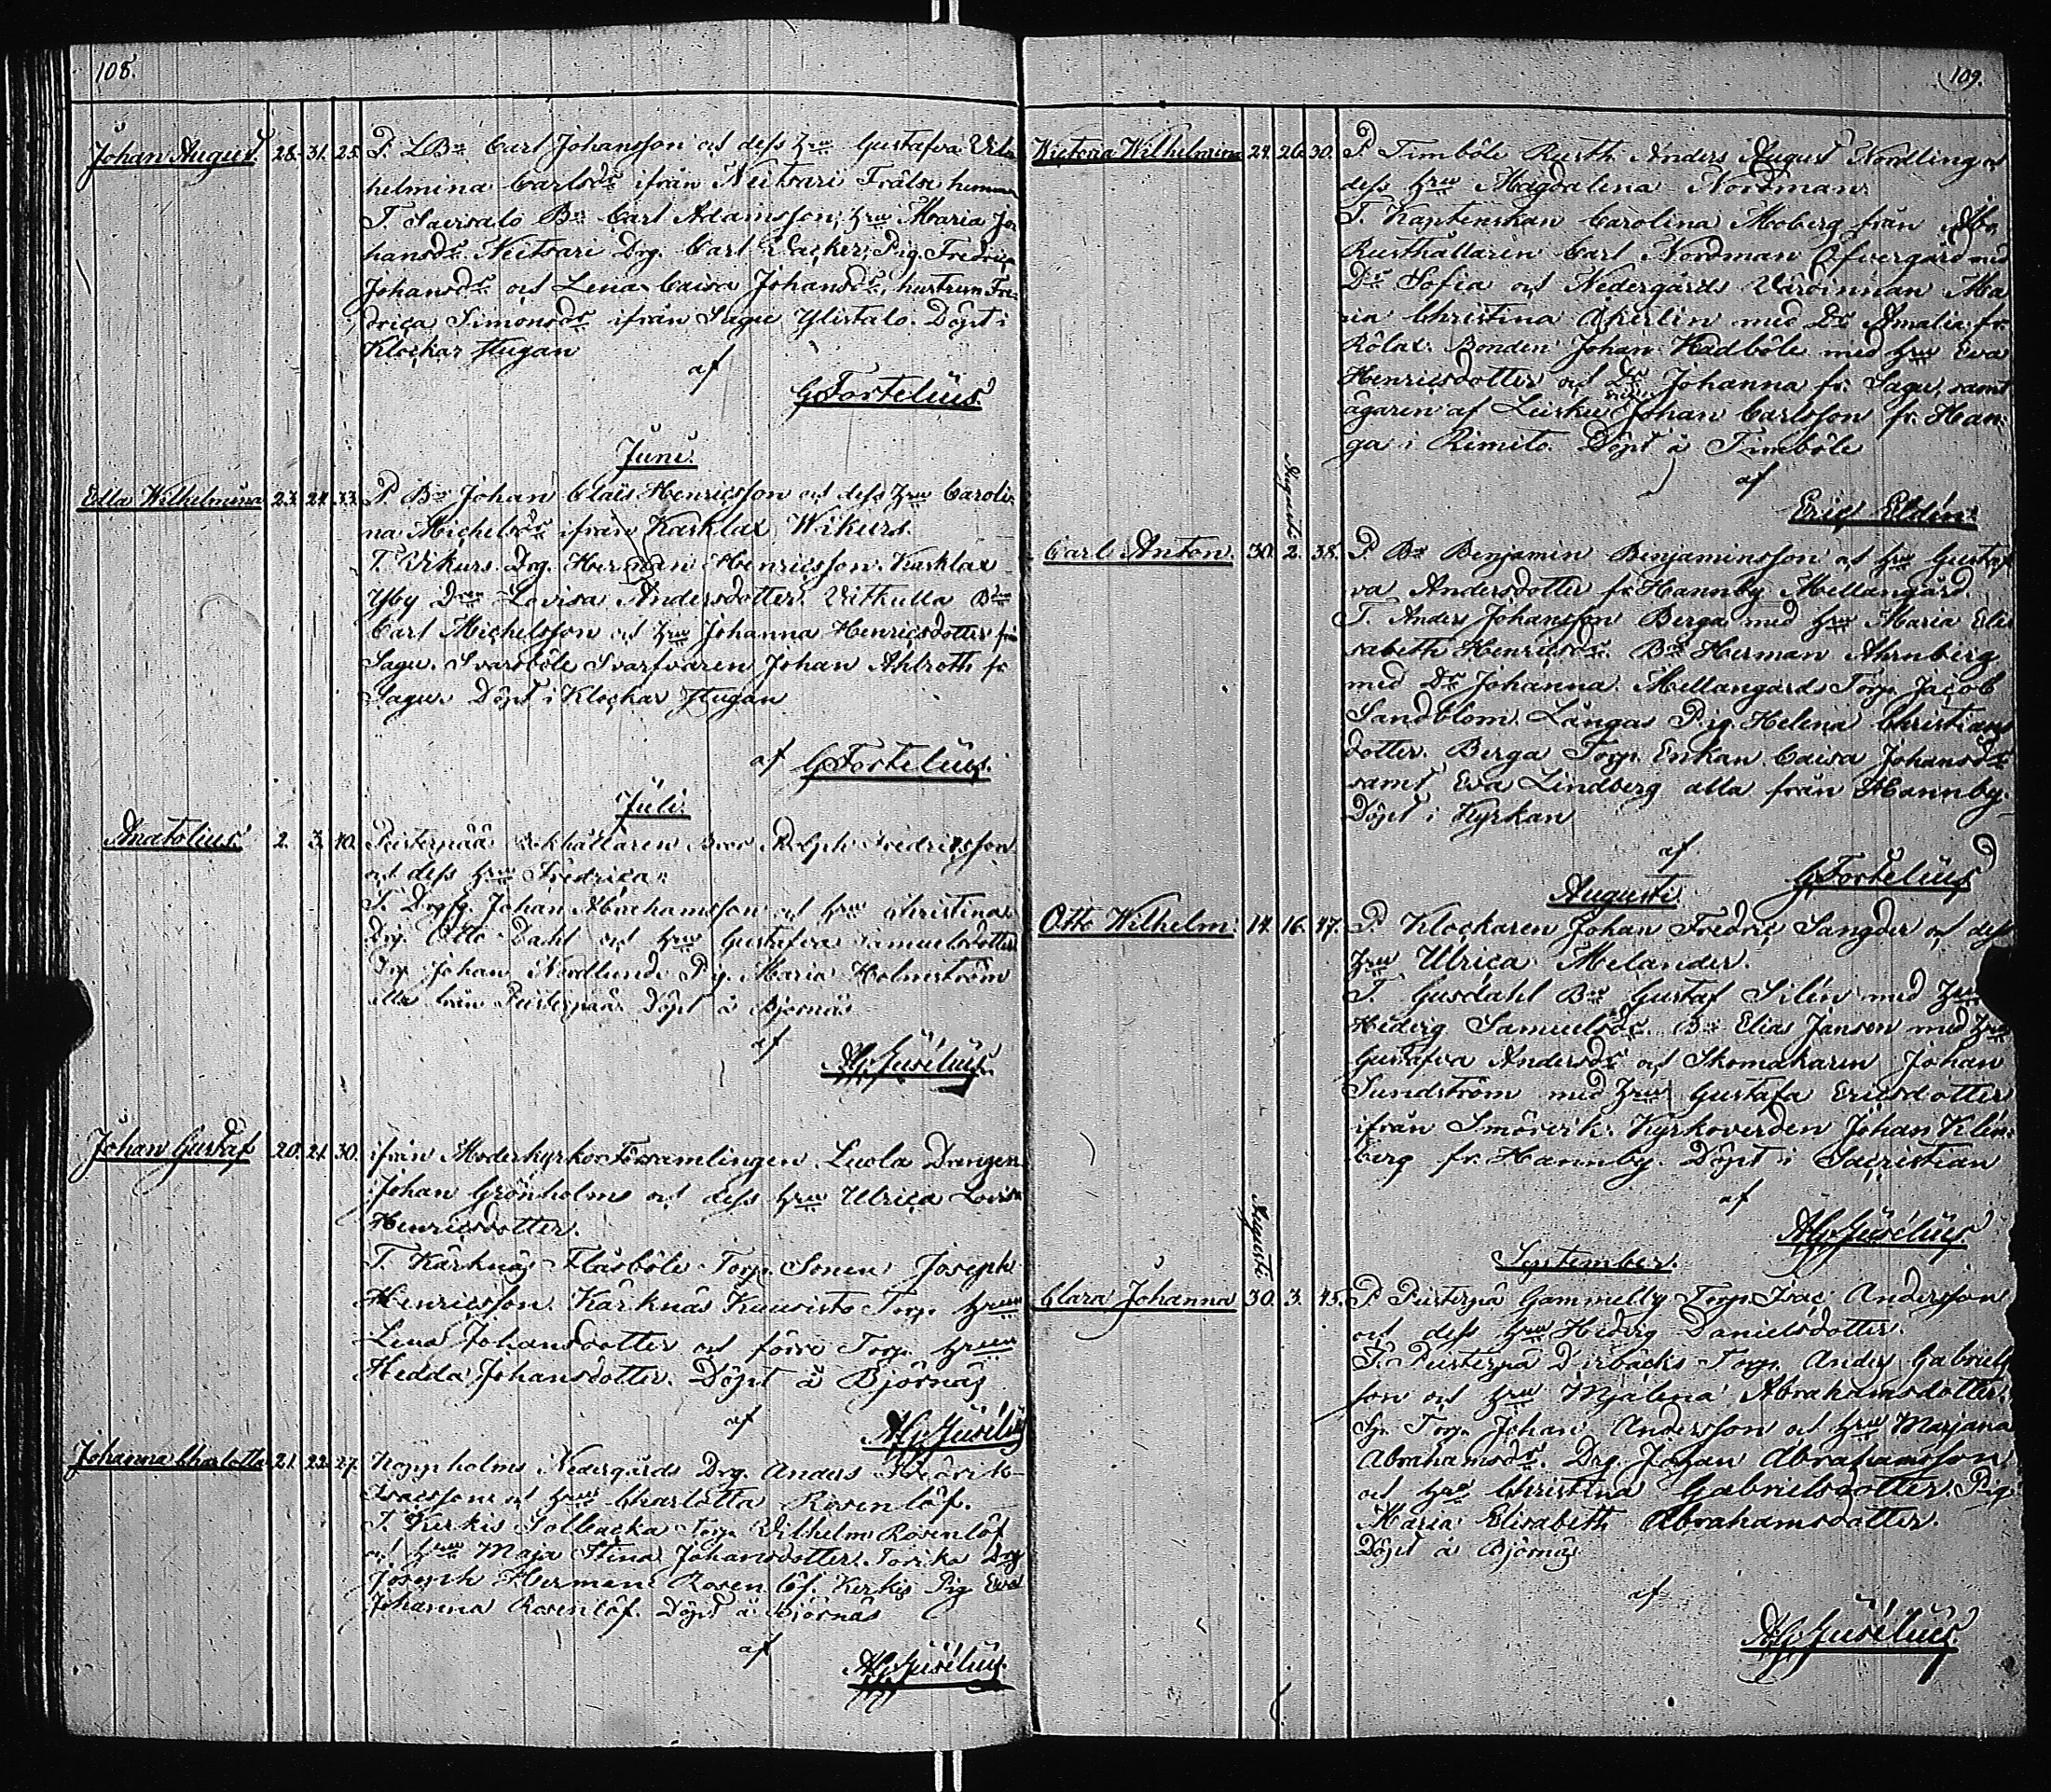 108.
Johan August. 28. 31. 25. P. LBn Carl Johansson och dess Hru Gustafva Vil-
helmina Carlsdr ifrån Neitsari Frälse hemman
T. Saersalo Bn Carl Adamsson, Hru Maria Jo
hansdr Neitsari Drg. Carl Packer, Pig. Fredrica
Johansdr och Lena Caisa Johansdr, hustrun Fre-
drica Simonsdr ifrån Sagu Ylistalo. Döpt i
Klockar stugan
af
G Fortelius
Juni.
Edla Wilhelmina 23. 24. 33. P Bn Johan Clais Henricsson och dess Hru Caroli-
na Michelsdr ifrån Karklax Wikurs.
T. Vikurs Drg. Herman Henricsson. Karklax
Yby Dran Lovisa Andersdotter. Vithulla Bn
Carl Michelsson och Hru Johanna Henricsdotter från
Sagu. Svarsböle Svarfvaren Johan Ahlroth fr
Sagu. Döpt i Klockar stugan
af G Fortelius.
Juli.
Anatolius 2. 3. 40. Pusterpää Bokhållaren Bror Adolph Fredricsson
och dess Hru Fredrica
T. Drg. Johan Abrahamsson och Hru Christina
Drg. Otto Dahl och Hru Gustafva Samuelsdotter
Drg Johan Nordlund Pig. Maria Holmström
alla från Pusterpää. Döpt å Björnäs
af
AG Jusélius.
Johan Gustaf 20. 21. 30. ifrån Moderkyrko Församlingen Luola Drengen
Johan Grönholm och dess Hru Ulrica Lovisa
Henricsdotter.
T. Kärknäs Flåsböle Torp. Sonen Joseph
Henricsson. Kärknäs Kuusisto Torp. Hrun
Lena Johansdotter och förre Torp. Hrun
Hedda Johansdotter. Döpt å Björnäs
af
AG Jusélius
Johanna Charlotta 21. 22. 27. Koppholms Nedergårds Drg. Anders Fredrik
Isacsson och Hru Charlotta Rosenlöf.
T. Kirkis Solbacka Torp Vilhelm Rosenlöf
och Hru Maja Stina Johansdotter. Torika Drg
Joseph Herman Rosenlöf. Kirkis Pig Eva
Johanna Rosenlöf. Döpt å Björnäs
af
AG Jusélius.
109.
Wictoria Wilhelmina 24. 26. 30. P. Timböle Rusth. Anders August Nordling och
dess Hru Magdalena Nordman
T. Kaptenskan Carolina Moberg från Åbo,
Rusthållaren Carl Nordman Öfvergård med
Dr Sofia och Nedergårds Värdinnan Ma
ria Christina Åkerlin med Dr Amalia fr.
Rölax. Bonden Johan Kadböle med Hru Eva
Henricsdotter och Dr Johanna fr. Sagu, samt
ägaren af Luisku Johan Carlsson fr. Han-
ga i Rimito. Döpt å Timböle
af
Eric Eldin.
Augusti
Carl Anton. 30. 2. 38. P Bn Benjamin Benjaminsson och Hru Gustaf
va Andersdotter fr Hannby Mellangård.
T. Anders Johansson Berga med Hru Maria Eli
sabeth Henricsdr. Bn Herman Ahrnberg
med Dr Johanna. Mellangårds Torp. Jacob
Sandblom. Långas Pig. Helena Christians
dotter. Berga Torp. Enkan Caisa Johansdr
samt Eva Lindberg alla från Hannby.
Döpt i Kyrkan
af
G Fortelius
Augusti.
Otto Wilhelm. 14. 16. 47. P. Klockaren Johan Fredric Sangder och dess
Hru Ulrica Melander.
T. Gusdahl Bn Gustaf Silén med Hru
Hedvig Samuelsdr. Bn Elias Janson med Hru
Gustafva Andersdr och Skomakaren Johan
Sundström med Hru Gustafa Ericsdotter
ifrån Smörvik. Kyrkoverden Johan Klin-
berg fr. Hannby. Döpt i Sacristian
af
AG Jusélius
September.
Augusti
Clara Johanna 30. 3. 45. P Pusterpä Gammelby Torp. Isac Andersson
och dess Hru Hedvig Danielsdotter.
T. Pusterpä Dirbäcks Torp. Anders Gabriels
son och Hru Mjalena Abrahamsdotter.
Torp. Johan Andersson och Hru Marjana
Abrahamsdr. Drg. Johan Abrahamsson
och Hru Christina Gabrielsdotter. Pig.
Maria Elisabeth Abrahamsdotter.
Döpt å Björnäs
af
AG Jusélius.